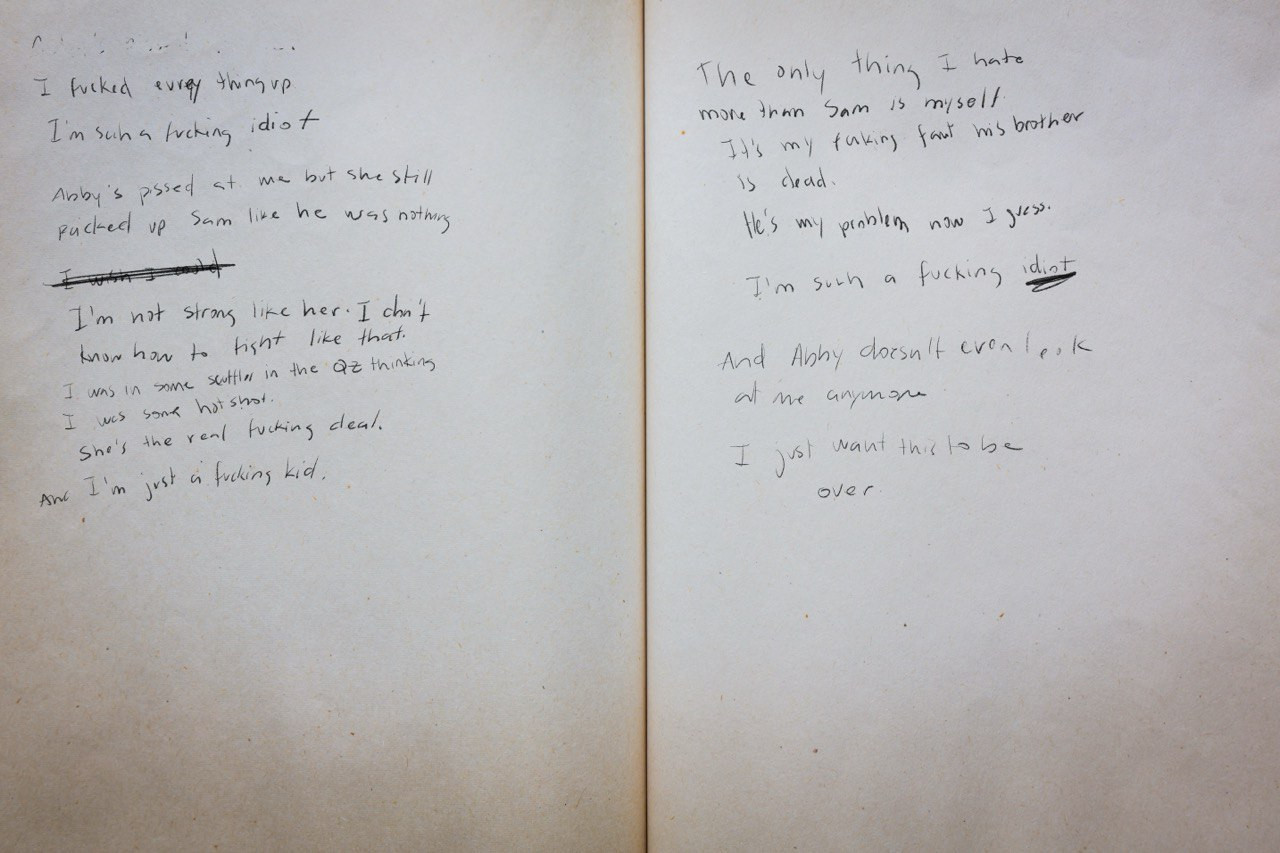 I fucked evrey thing up
I'm such a fucking idiot
Abby's pissed at me but she still
picked up Sam like he was nothing
I wish I could
I'm not strong like her. I don't
know how to fight like that.
I was in some scuffles in the QZ thinking
I was some hotshot.
She's the real fucking deal.
And I'm just a fucking kid.
The only thing I hate
more than Sam is myself.
It's my fucking fault his brother
is dead.
He's my problem now I guess.
I'm such a fucking idiot
And Abby doesn't even look
at me anymore
I just want this to be
over.